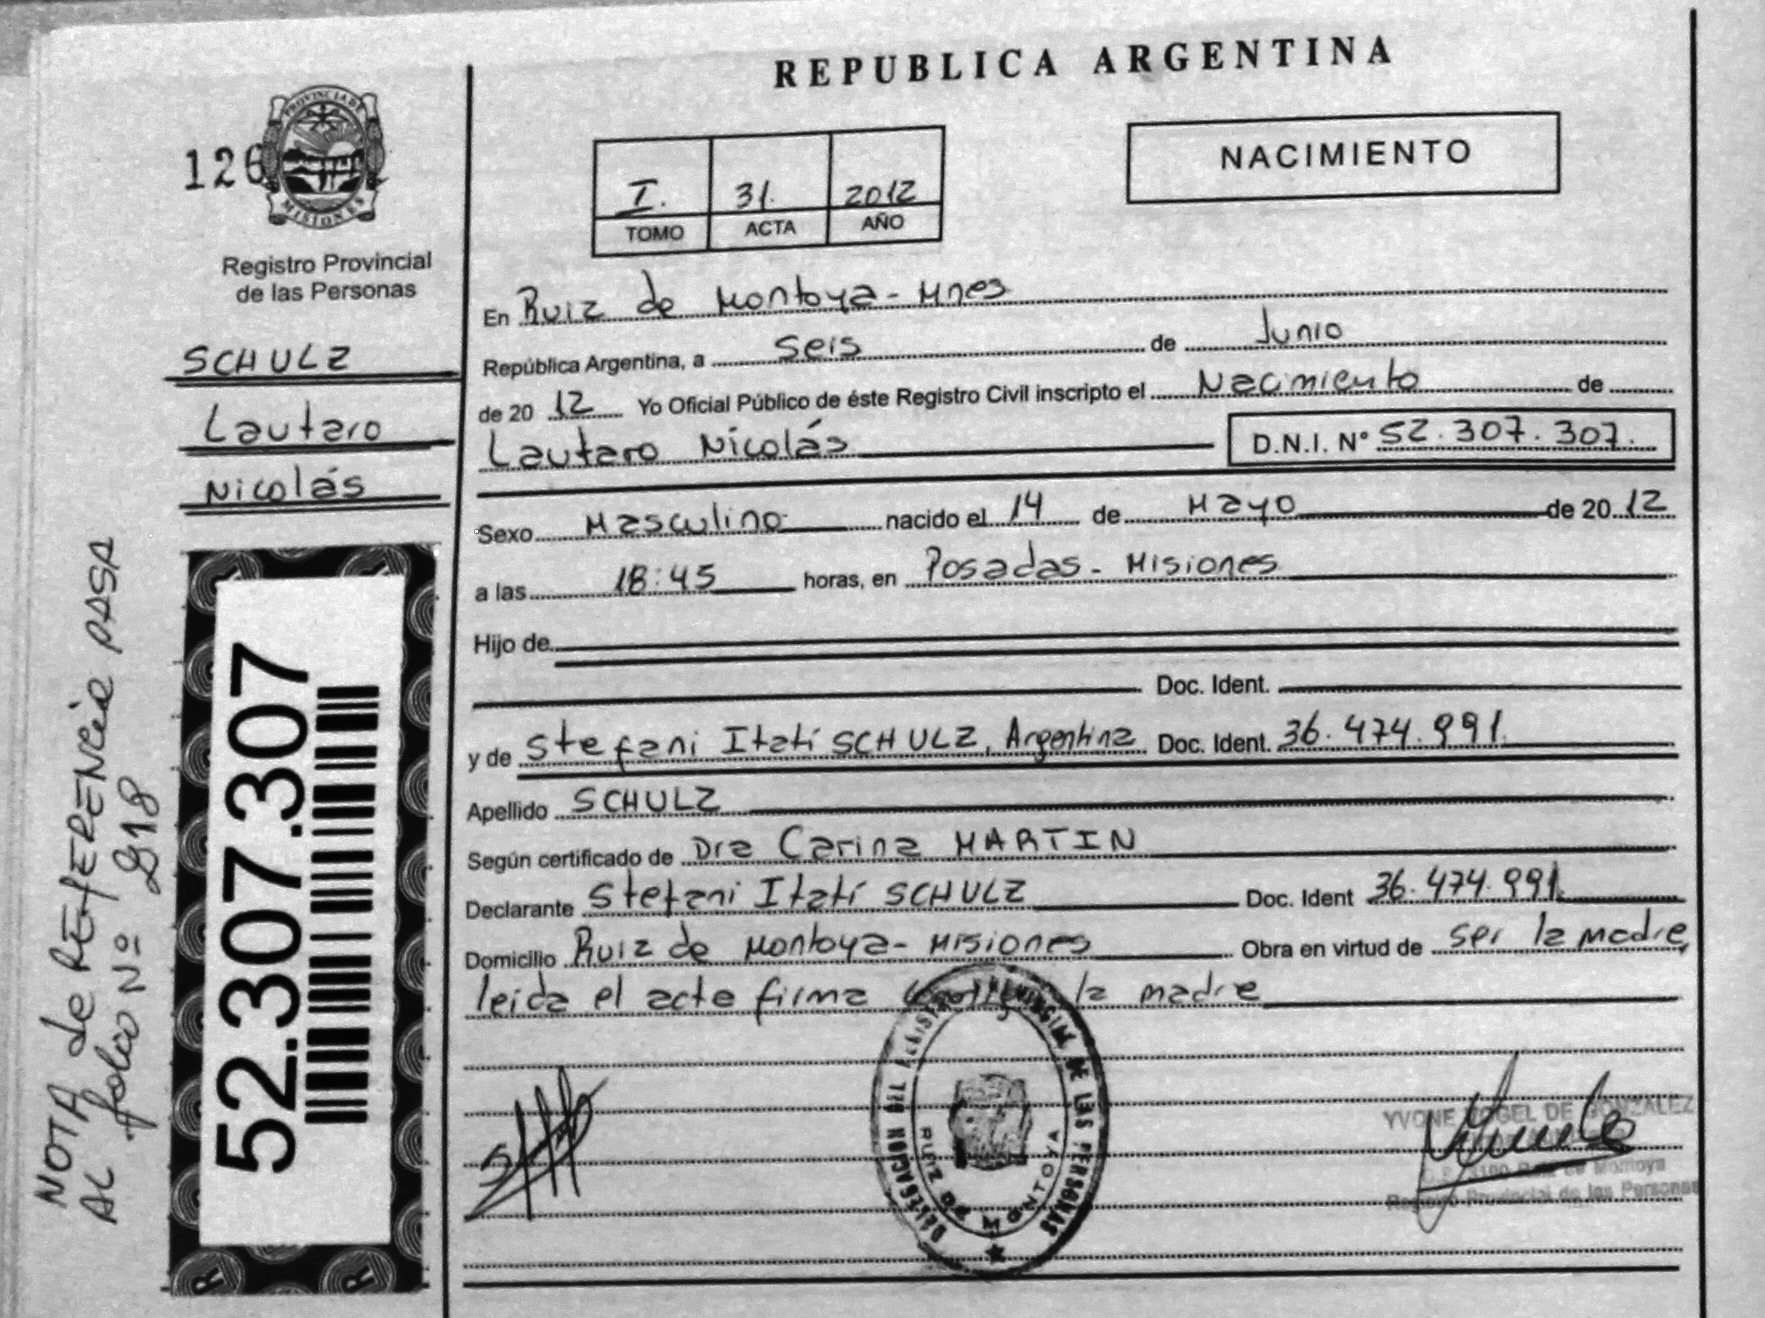 REPUBLICA ARGENTINA
126
PROVINCIA DE
MISIONES
Registro Provincial
de las Personas
SCHULZ
Lautaro
Nicolás
NOTA de REFERENCIA PASA
AL folio Nº 218
52.307.307
R
R
I. 31. 2012
TOMO ACTA AÑO
NACIMIENTO
En Ruiz de Montoya - Mnes
República Argentina, a seis de Junio
de 20 12 Yo Oficial Público de éste Registro Civil inscripto el Nacimiento de
Lautaro Nicolás D.N.I. Nº 52.307.307.
Sexo Masculino nacido el 14 de Mayo de 20 12
a las 18:45 horas, en Posadas - Misiones
Hijo de
Doc. Ident.
y de Stefani Itatí SCHULZ, Argentina Doc. Ident. 36.474.991
Apellido SCHULZ
Según certificado de Dra Carina MARTIN
Declarante Stefani Itatí SCHULZ Doc. Ident 36.474.991.
Domicilio Ruiz de Montoya - Misiones Obra en virtud de ser la madre,
leida el acta firma la madre
DELEGACION DEL REGISTRO PROVINCIAL DE LAS PERSONAS
RUIZ DE MONTOYA
YVONE VOGEL DE GONZALEZ
Ruiz de Montoya
Registro Provincial de las Personas